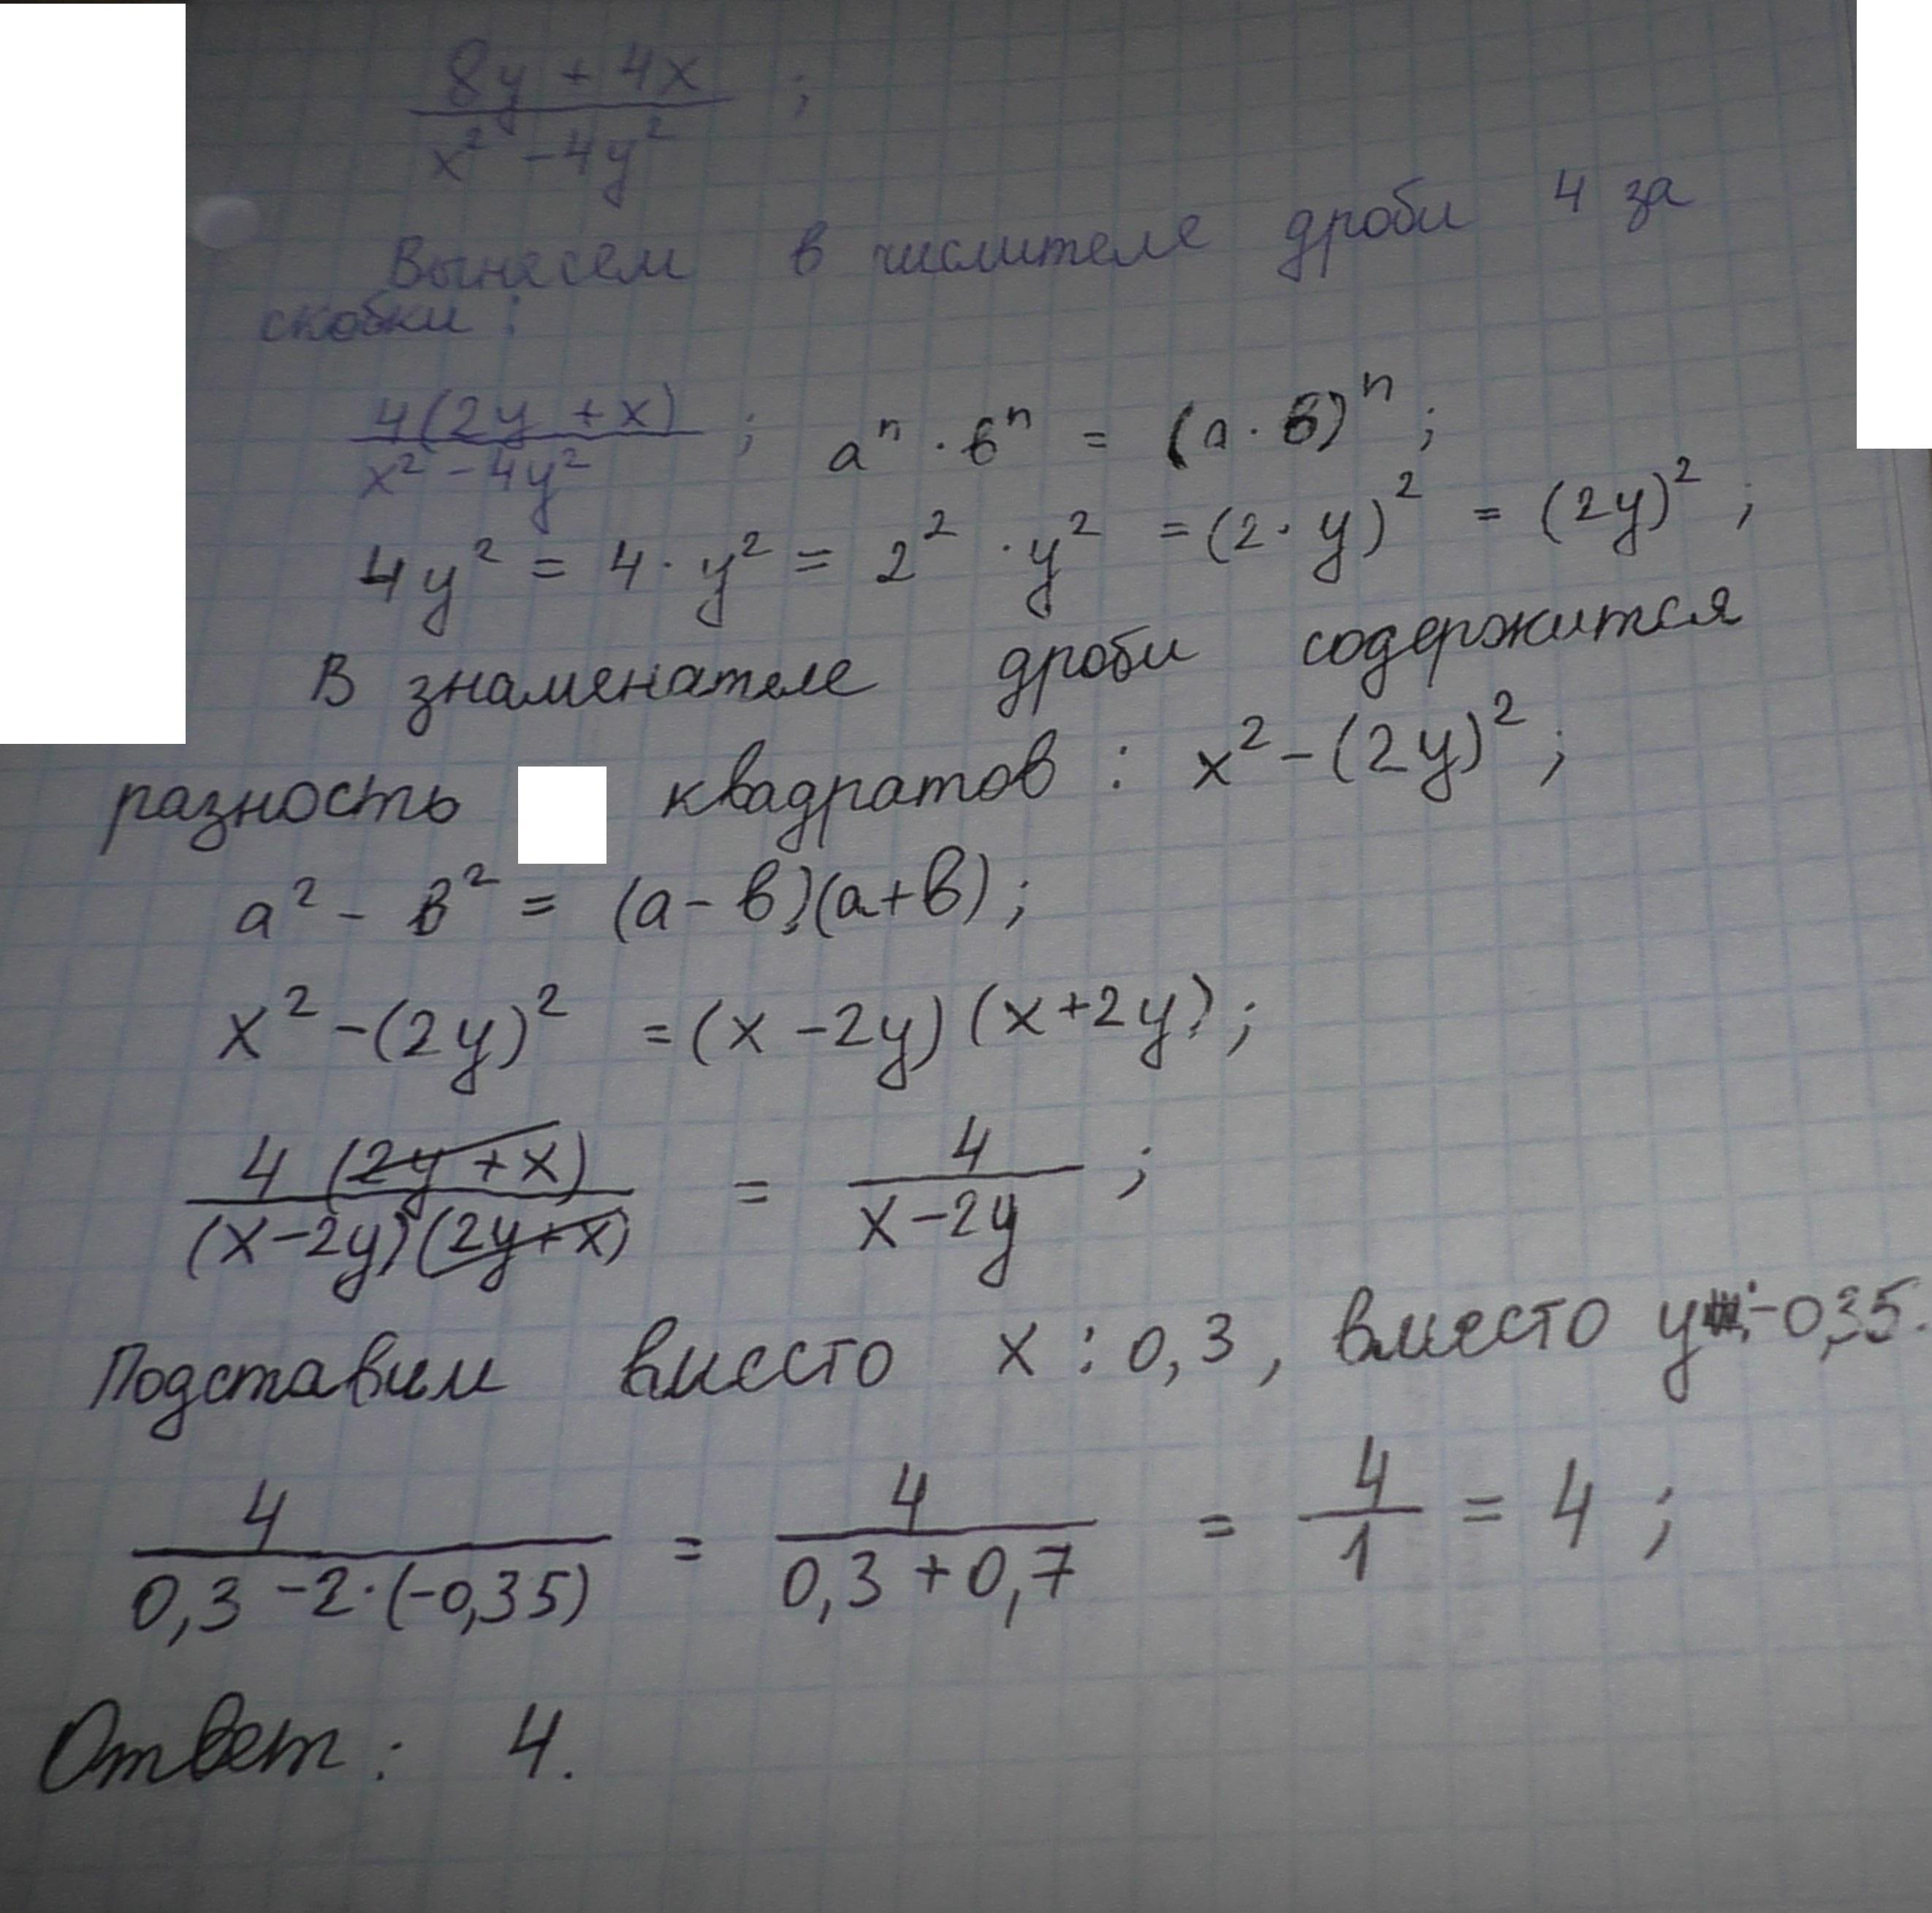 (8y + 4x)/(x² - 4y²) ;
Вынесем в числителе дроби 4 за
скобки :
4(2y + x)/(x² - 4y²) ; aⁿ · bⁿ = (a · b)ⁿ ;
4y² = 4 · y² = 2² · y² = (2 · y)² = (2y)² ;
В знаменателе дроби содержится
разность квадратов : x² - (2y)² ;
a² - b² = (a - b)(a + b) ;
x² - (2y)² = (x - 2y)(x + 2y) ;
4(2y + x)/((x - 2y)(2y + x)) = 4/(x - 2y) ;
Подставим вместо x : 0,3 , вместо y : -0,35.
4/(0,3 - 2 · (-0,35)) = 4/(0,3 + 0,7) = 4/1 = 4 ;
Ответ : 4.